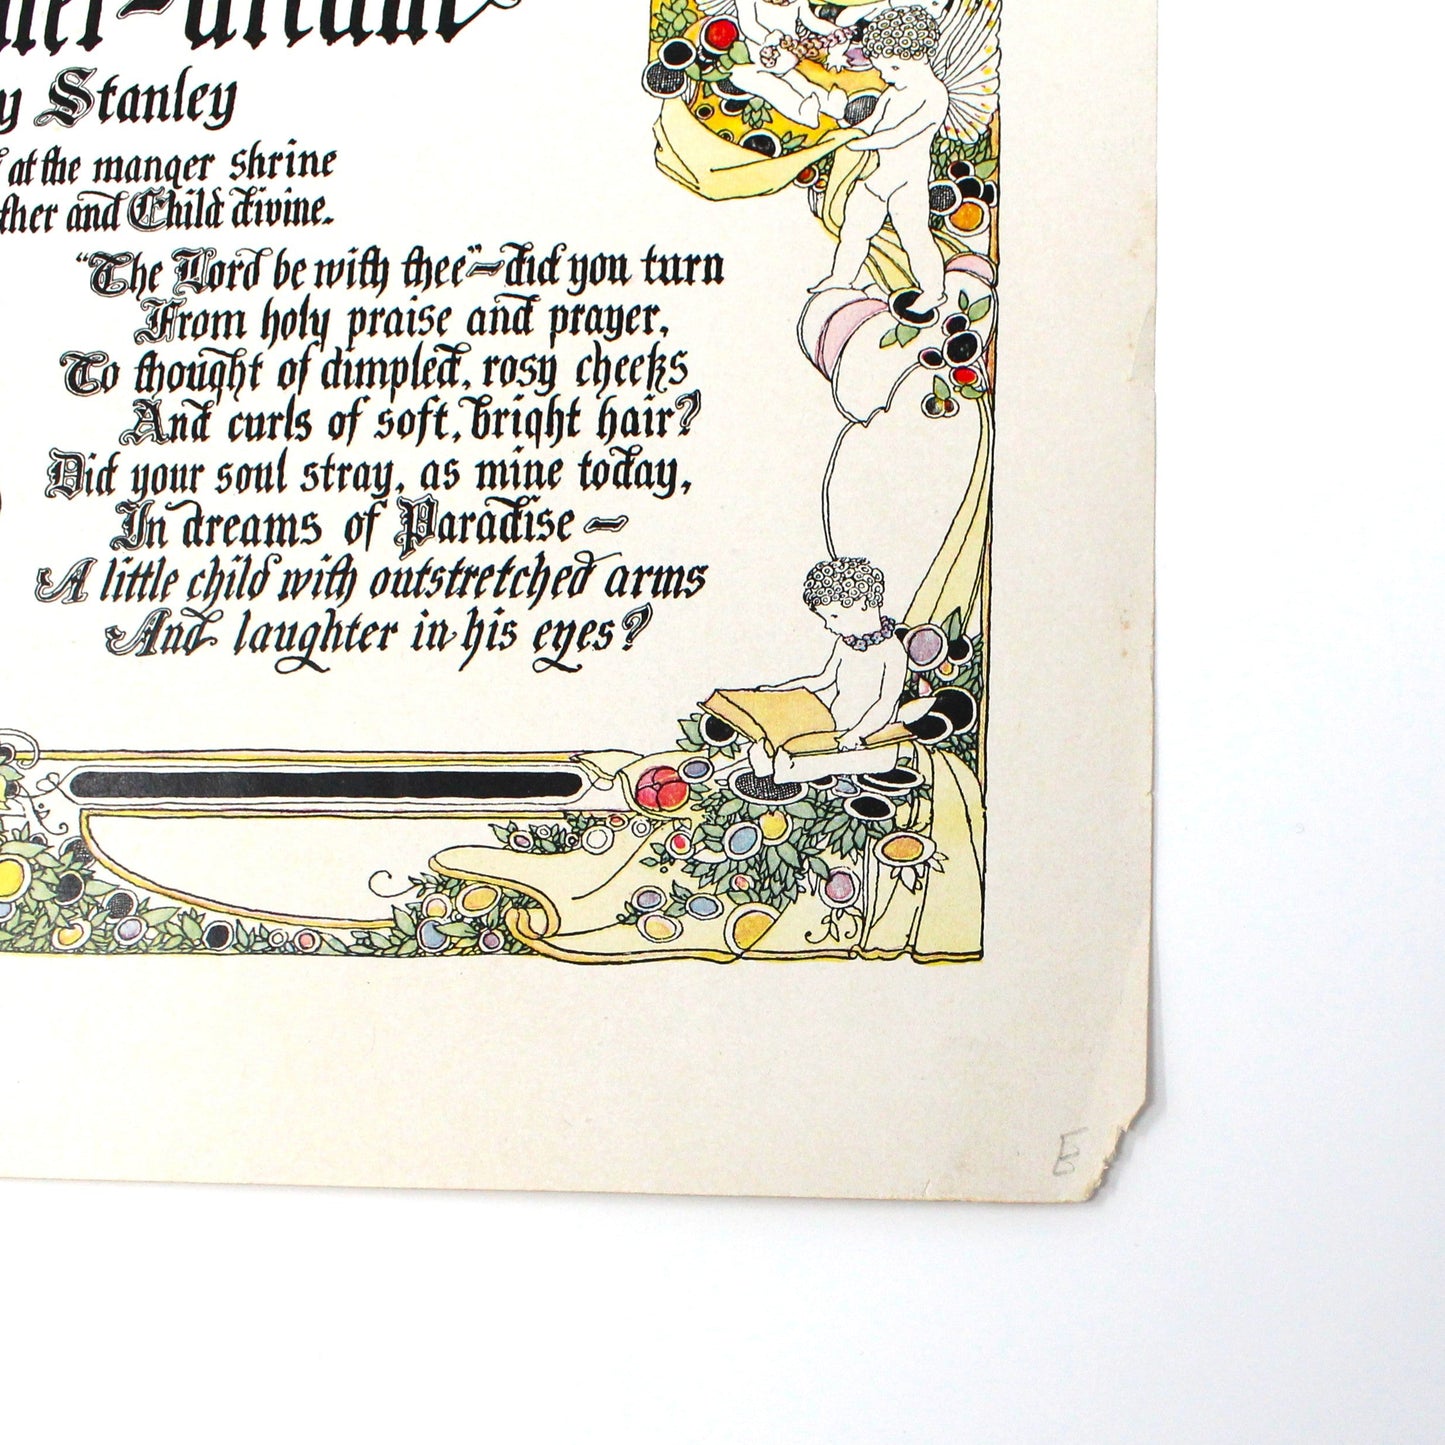 Stanley
at the manger shrine
and Child divine.
"The Lord be with thee"—did you turn
From holy praise and prayer,
To thought of dimpled, rosy cheeks
And curls of soft, bright hair?
Did your soul stray, as mine today,
In dreams of Paradise—
A little child with outstretched arms
And laughter in his eyes?
E